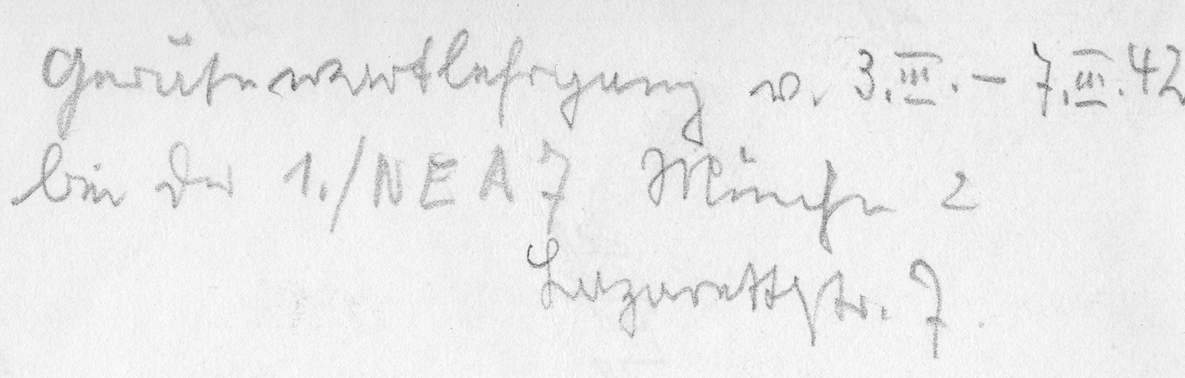 Gerätewartlehrgang v. 3.III. – 7.III.42
bei der 1./NEA 7 München 2
Lazarettstr. 7.